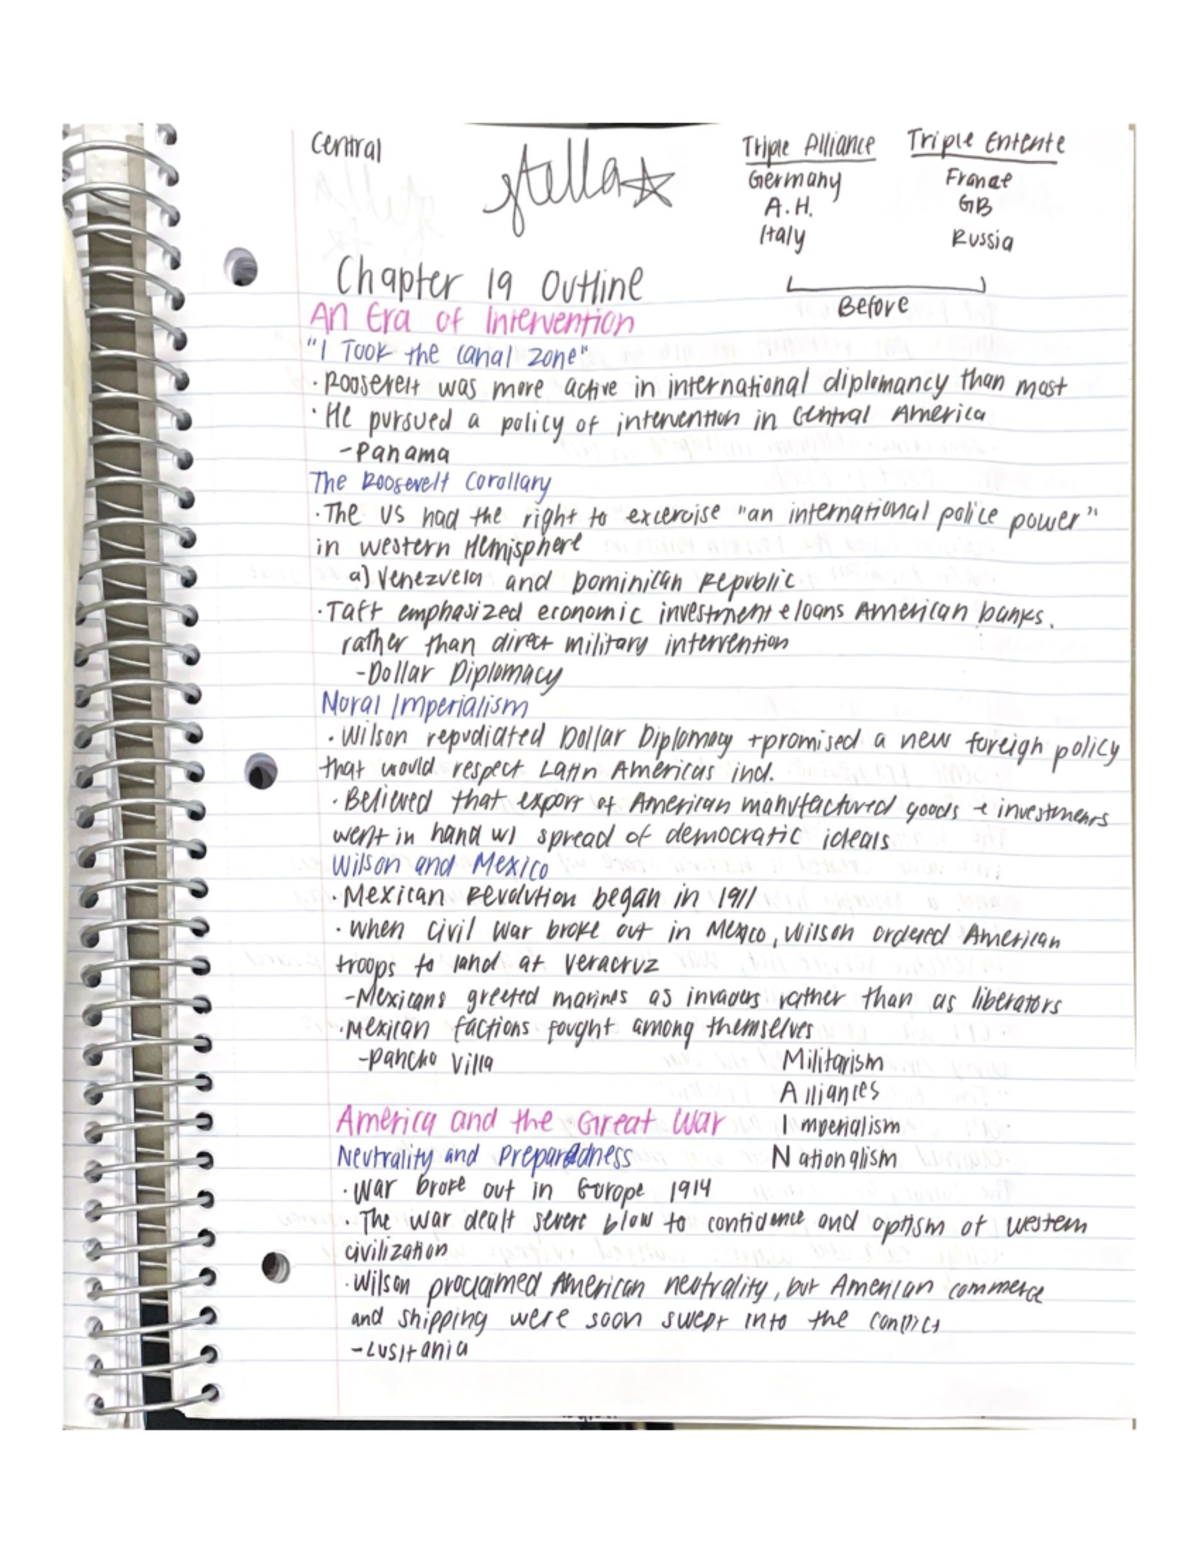 Central
stella
Triple Alliance
Germany
A.H.
Italy
Triple Entente
France
GB
Russia
Before
Chapter 19 Outline
An Era of Intervention
"I Took the Canal Zone"
· Roosevelt was more active in international diplomancy than most
· He pursued a policy of intervention in Central America
-Panama
The Roosevelt Corollary
· The US had the right to excercise "an international police power"
in western Hemisphere
a) Venezuela and Dominican Republic
· Taft emphasized economic investment + loans American banks.
rather than direct military intervention
-Dollar Diplomacy
Moral Imperialism
· Wilson repudiated Dollar Diplomacy + promised a new foreign policy
that would respect Latin Americas ind.
· Believed that export of American manufactured goods + investments
went in hand w/ spread of democratic ideals
Wilson and Mexico
· Mexican Revolution began in 1911
· When civil war broke out in Mexico, Wilson ordered American
troops to land at Veracruz
-Mexicans greeted marines as invaders rather than as liberators
· Mexican factions fought among themselves
-Pancho Villa
Militarism
Alliances
Imperialism
Nationalism
America and the Great War
Neutrality and Preparedness
· War broke out in Europe 1914
· The war dealt severe blow to confidence and optism of western
civilization
· Wilson proclaimed American neutrality, but American commerce
and shipping were soon swept into the conflict
-Lusitania